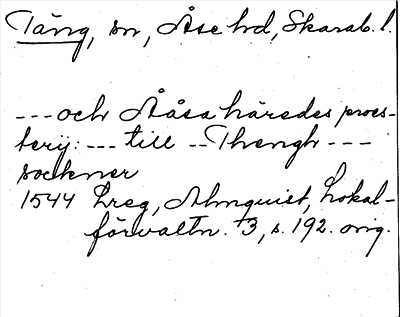 Täng, sn, Åse hd, Skarab. l.
--- och Aåsa häredes proes-
terij: --- till -- Thengh ---
sockner
1544 Lreg, Almquist, Lokal-
förvaltn. 3, s. 192. orig.